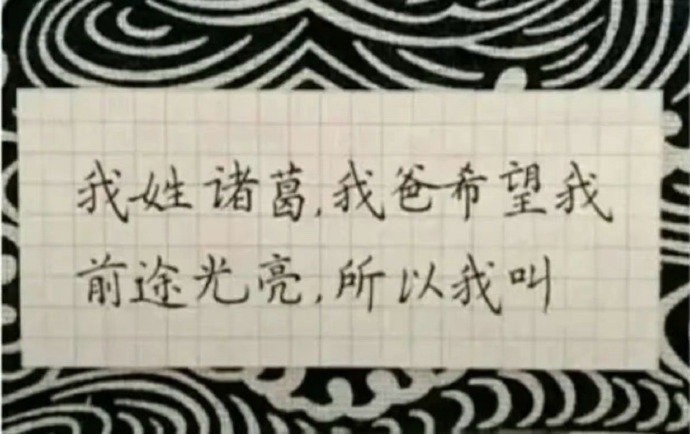 我姓诸葛,我爸希望我
前途光亮,所以我叫